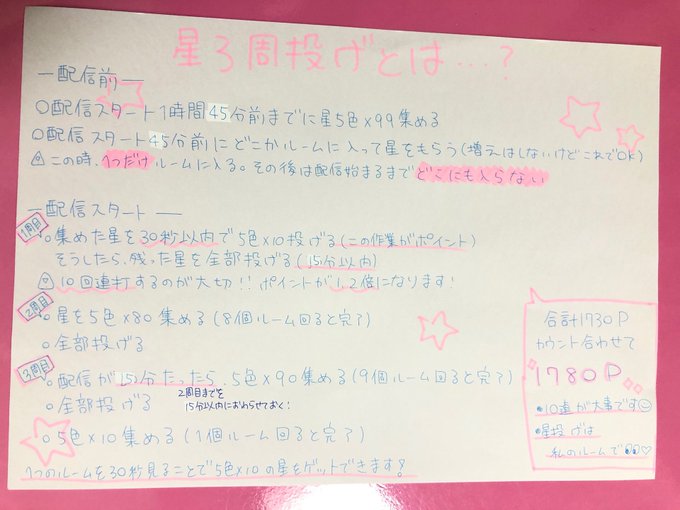 星3周投げとは…?
ー配信前ー
○配信スタート1時間45分前までに星5色×99集める
○配信スタート45分前にどこかルームに入って星をもらう(増えはしないけどこれでOK)
⚠この時、1つだけルームに入る。その後は配信始まるまでどこにも入らない
ー配信スタートー
1周目
○集めた星を30秒以内で5色×10投げる(この作業がポイント)
そうしたら、残った星を全部投げる(15分以内)
⚠10回連打するのが大切!!ポイントが1.2倍になります!
2周目
○星を5色×80集める(8個ルーム回ると完了)
○全部投げる
3周目
○配信が15分たったら、5色×90集める(9個ルーム回ると完了)
○全部投げる
2周目までを
15分以内におわらせておく!
○5色×10集める(1個ルーム回ると完了)
1つのルームを30秒見ることで5色×10の星をゲットできます!
合計1730P
カウント合わせて
1780P
•10連が大事です☺
•星投げは
私のルームで♡